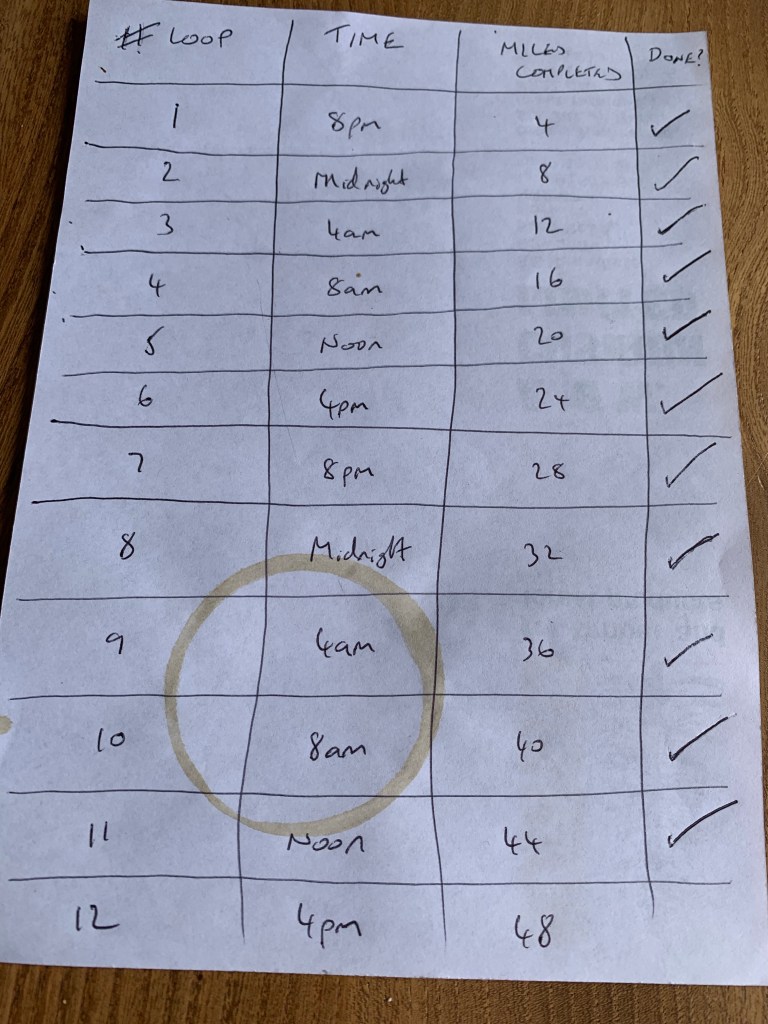 # LOOP TIME MILES COMPLETED DONE?
1 8pm 4 ✓
2 Midnight 8 ✓
3 4am 12 ✓
4 8am 16 ✓
5 Noon 20 ✓
6 4pm 24 ✓
7 8pm 28 ✓
8 Midnight 32 ✓
9 4am 36 ✓
10 8am 40 ✓
11 Noon 44 ✓
12 4pm 48